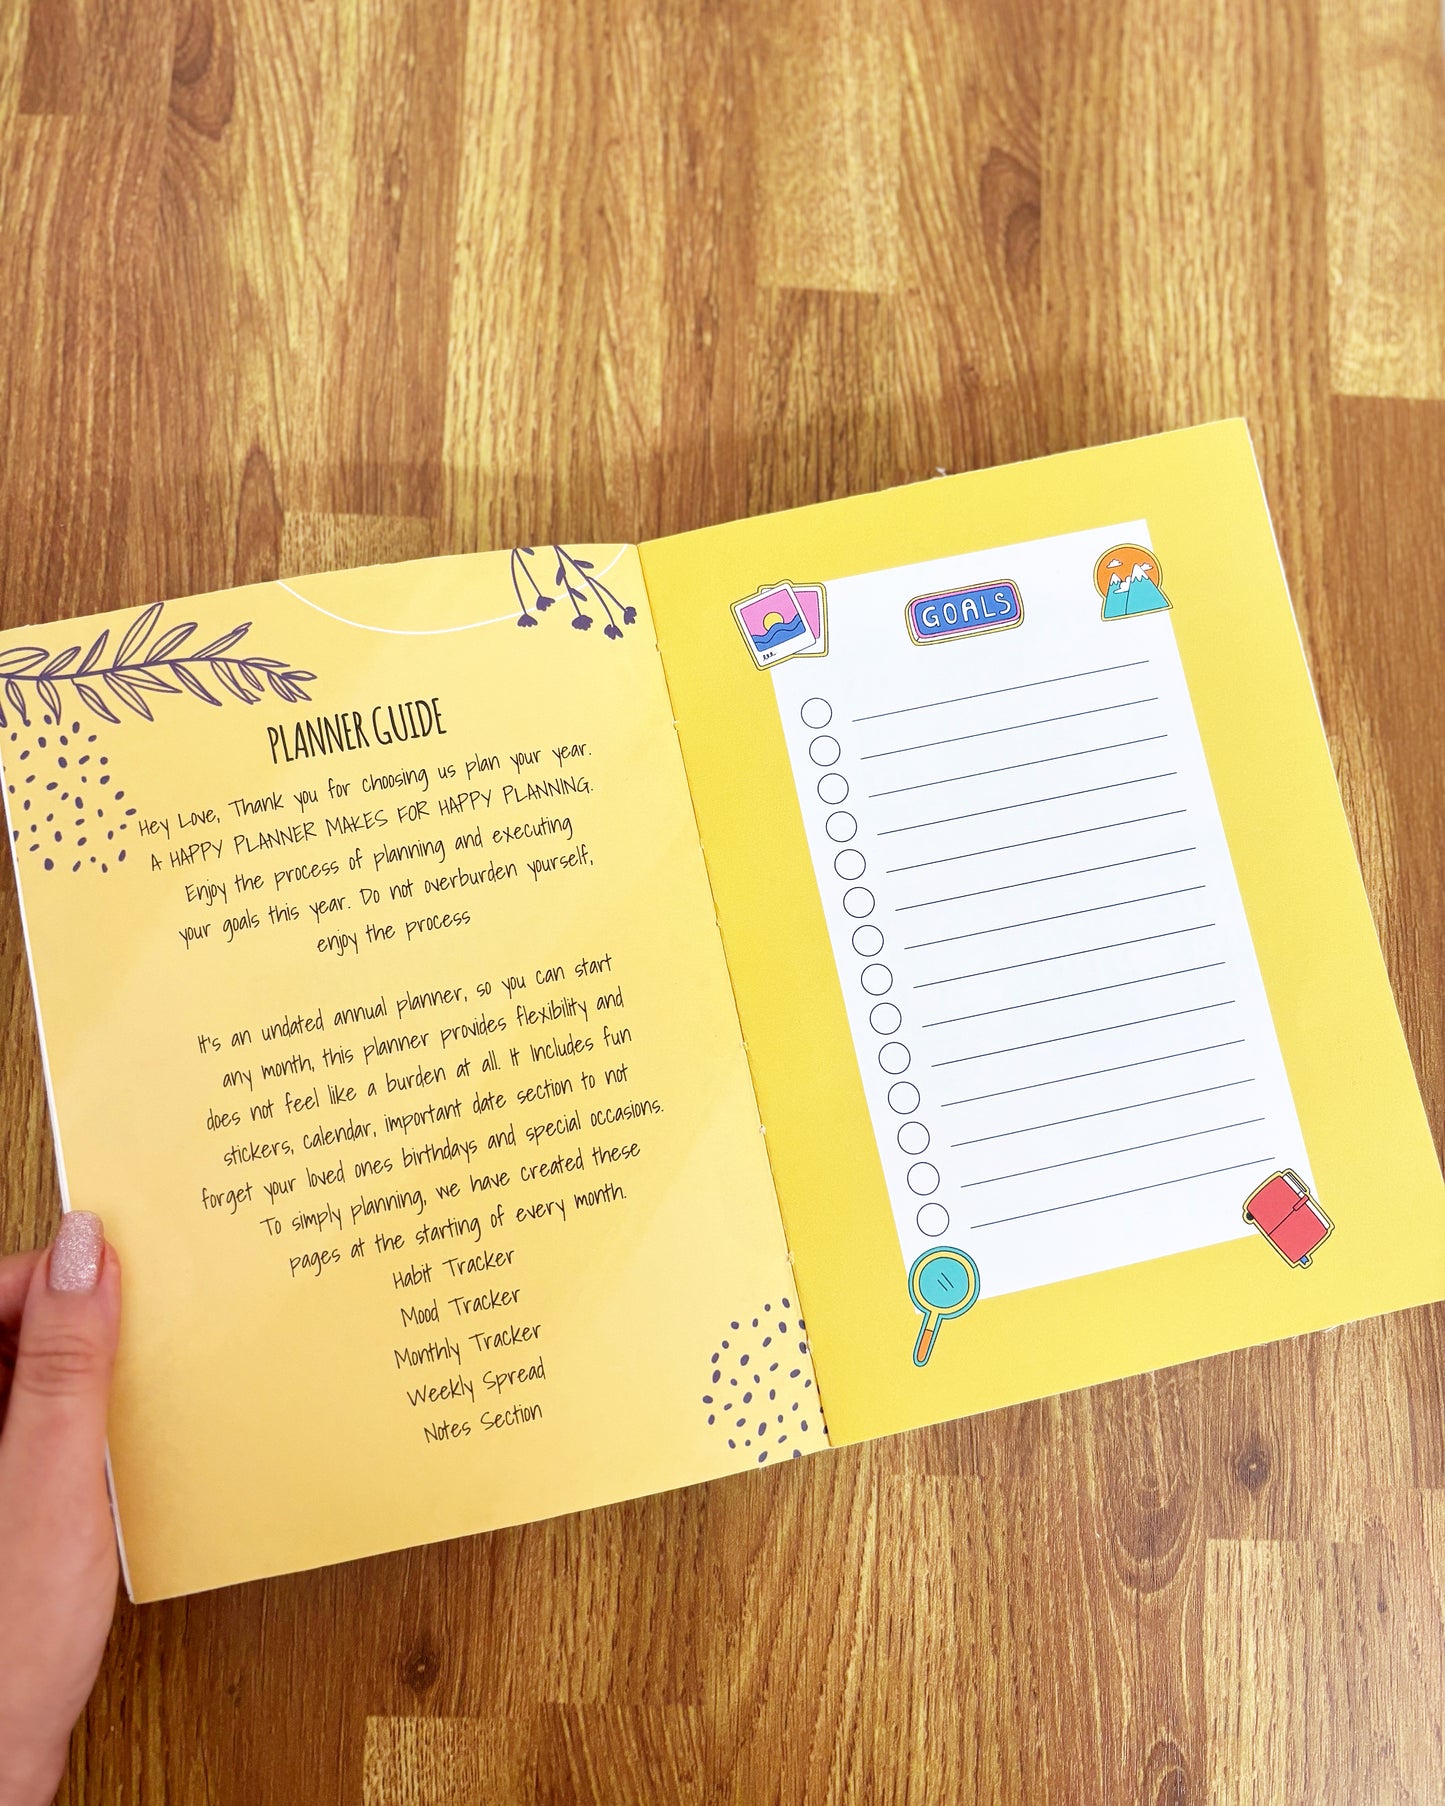 PLANNER GUIDE
Hey Love, Thank you for choosing us plan your year.
A HAPPY PLANNER MAKES FOR HAPPY PLANNING.
Enjoy the process of planning and executing
your goals this year. Do not overburden yourself,
enjoy the process
It's an undated annual planner, so you can start
any month, this planner provides flexibility and
does not feel like a burden at all. It Includes fun
stickers, calendar, important date section to not
forget your loved ones birthdays and special occasions.
To simply planning, we have created these
pages at the starting of every month.
Habit Tracker
Mood Tracker
Monthly Tracker
Weekly Spread
Notes Section
GOALS